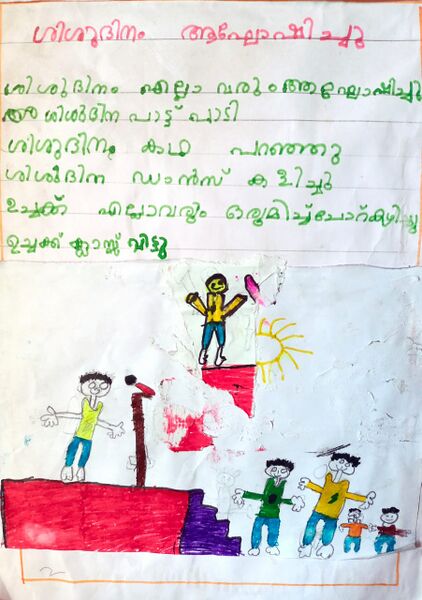 ശിശുദിനം ആഘോഷിച്ചു
ശിശുദിനം എല്ലാ വരും ആഘോഷിച്ചു
ശിശുദിന പാട്ട് പാടി
ശിശുദിനം കഥ പറഞ്ഞു
ശിശുദിന ഡാൻസ് കളിച്ചു
ഉച്ചക്ക് എല്ലാവരും ഒരുമിച്ച് ചോറ് കഴിച്ചു
ഉച്ചക്ക് ക്ലാസ്സ് വിട്ടു